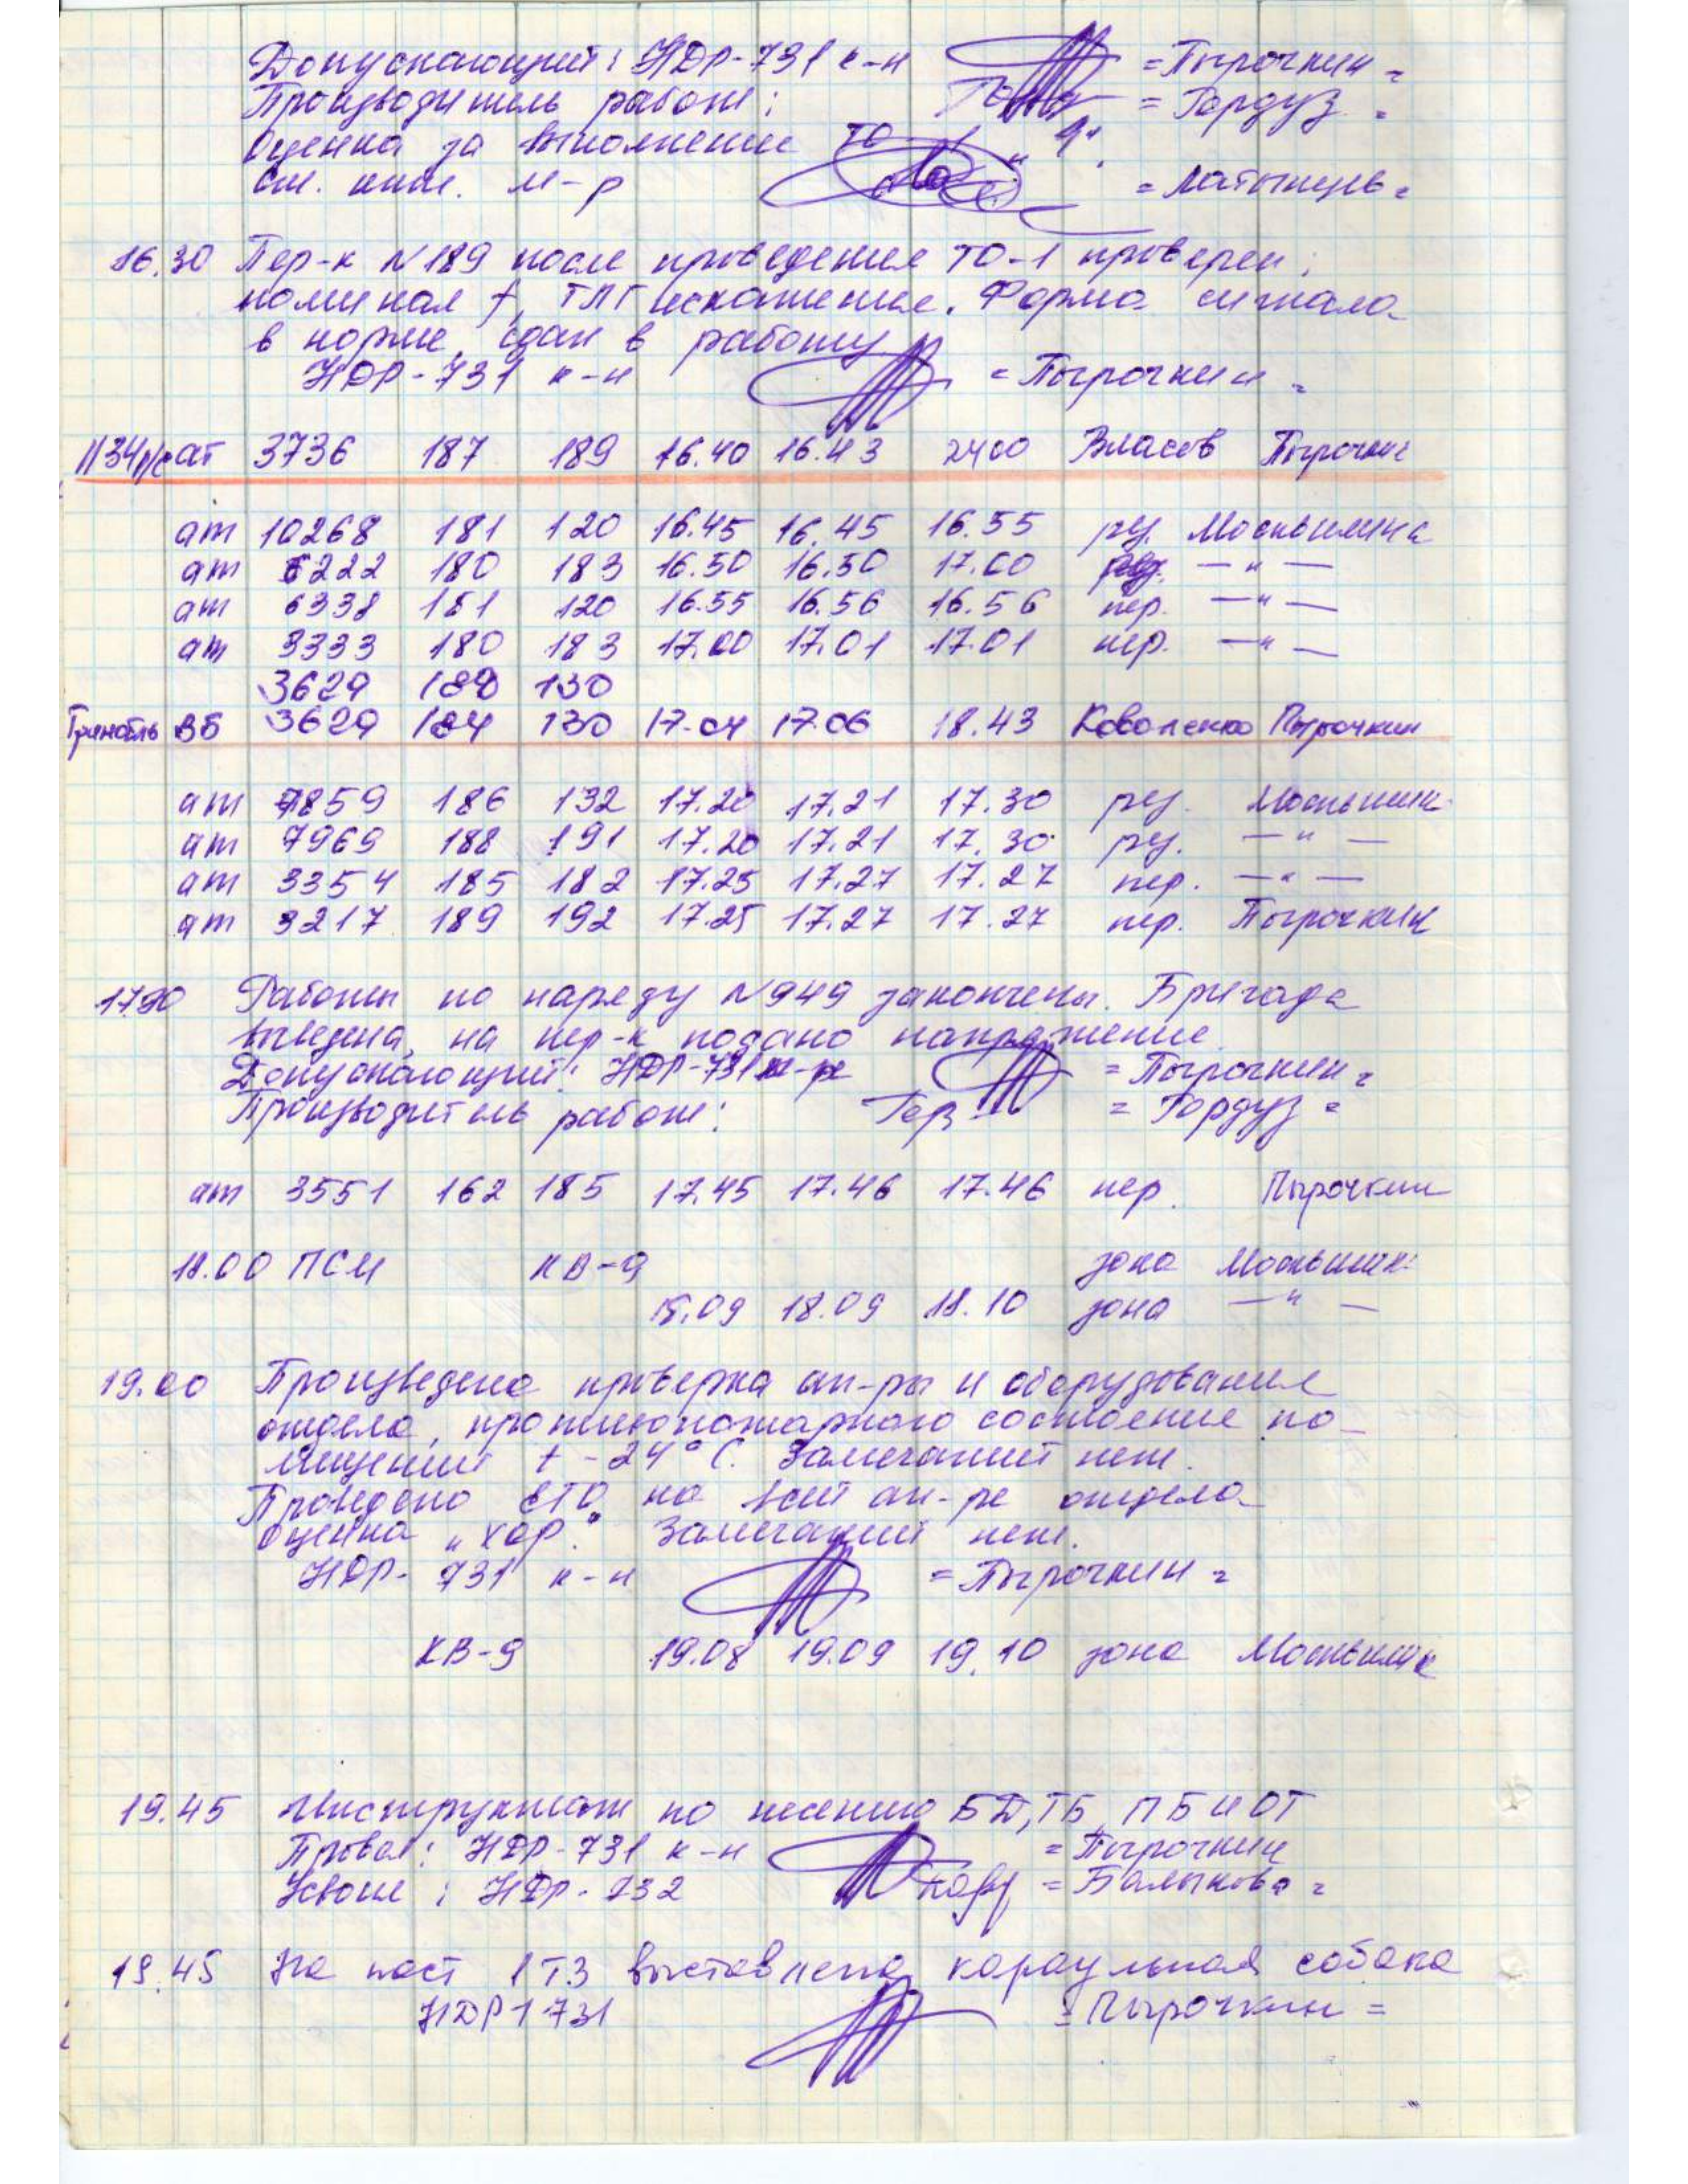 Допускающий: НДР-731 к-н = Пырочкин =
Производитель работ: = Гордуз =
Оценка за выполнение ТО „4"
см. инж. м-р = Латынцев =
16.30 Пер-к N189 после проведения ТО-1 проверен:
номинал f, ТЛГ искажения. Форма сигнала
в норме, сдан в работу
НДР-731 к-н = Пырочкин =
ат 3736 187 189 16.40 16.43 2400 Власов Пырочкин
ат 10268 181 120 16.45 16.45 16.55 рез. Москвитина
ат 6222 180 183 16.50 16.50 17.00 рез. — " —
ат 6338 181 120 16.55 16.56 16.56 пер. — " —
ат 3333 180 183 17.00 17.01 17.01 пер. — " —
3629 189 130
Гринобль ВБ 3629 184 130 17.04 17.06 18.43 Коваленко Пырочкин
ат 7859 186 132 17.20 17.21 17.30 рез.
ат 7969 188 191 17.20 17.21 17.30 рез. — " —
ат 3354 185 182 17.25 17.27 17.27 пер. — " —
ат 3217 189 192 17.25 17.27 17.27 пер. Пырочкин
17.30 Работы по наряду N949 закончены. Бригада
выведена, на пер-к подано напряжение.
Допускающий: НДР-731 = Пырочкин =
Производитель работ: = Гордуз =
ат 3551 162 185 17.45 17.46 17.46 пер. Пырочкин
18.00 ПСМ КВ-9 зона
18.09 18.09 18.10 зона — " —
19.00 Произведена проверка ап-ры и оборудования
отдела, противопожарного состояние по-
мещений t - 24° С. Замечаний нет.
Проведено ЕТО на всей ап-ре отдела
Оценка „хор." Замечаний нет.
НДР-731 к-н = Пырочкин =
КВ-9 19.08 19.09 19.10 зона
19.45 Инструктаж по несению БД, ТБ, ПБ и ОТ
Провел: НДР-731 к-н = Пырочкин
Усвоил: НДР-732 = Балыкова =
19.45 На пост 1ТЗ выставлена караульная собака
НДР1 731 = Пырочкин =